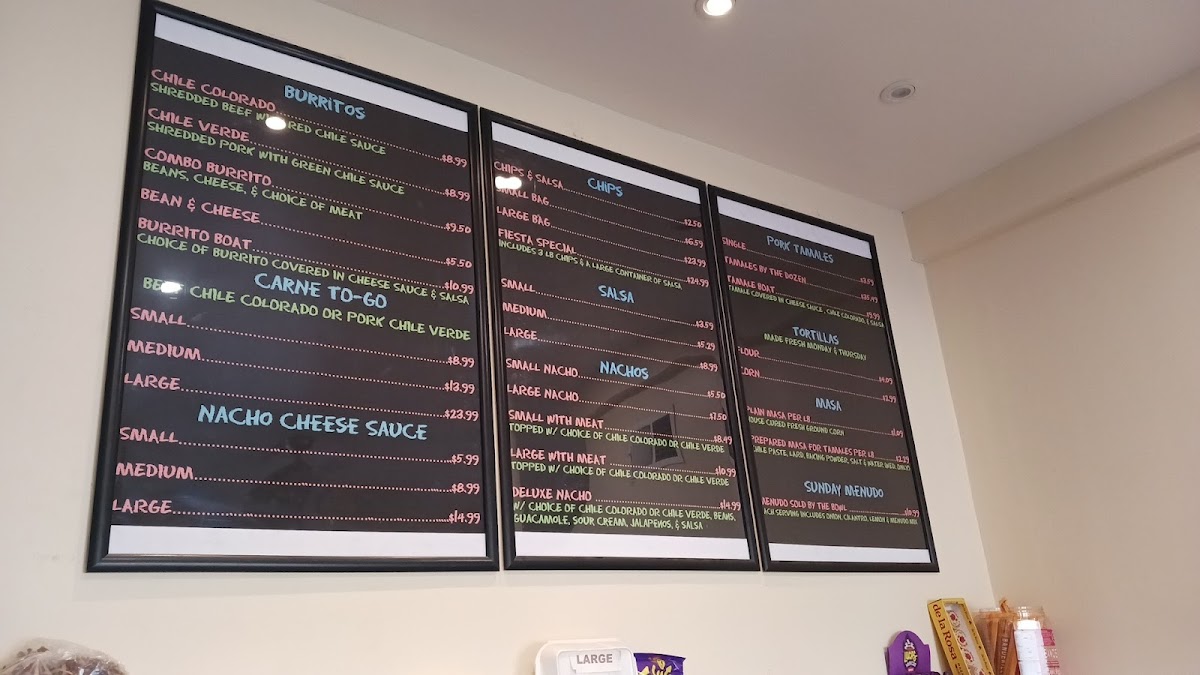 BURRITOS
CHILE COLORADO
SHREDDED BEEF W RED CHILE SAUCE $8.99
CHILE VERDE
SHREDDED PORK WITH GREEN CHILE SAUCE $8.99
COMBO BURRITO
BEANS, CHEESE, & CHOICE OF MEAT $9.50
BEAN & CHEESE $5.50
BURRITO BOAT $10.99
CHOICE OF BURRITO COVERED IN CHEESE SAUCE & SALSA
CARNE TO-GO
BEEF CHILE COLORADO OR PORK CHILE VERDE
SMALL $8.99
MEDIUM $13.99
LARGE $23.99
NACHO CHEESE SAUCE
SMALL $5.99
MEDIUM $8.99
LARGE $14.99
CHIPS
CHIPS & SALSA $2.50
SMALL BAG $6.59
LARGE BAG $23.99
FIESTA SPECIAL $24.99
INCLUDES 3 LB CHIPS & A LARGE CONTAINER OF SALSA
SALSA
SMALL $3.59
MEDIUM $5.29
LARGE $8.99
NACHOS
SMALL NACHO $5.50
LARGE NACHO $7.50
SMALL WITH MEAT $8.49
TOPPED W/ CHOICE OF CHILE COLORADO OR CHILE VERDE
LARGE WITH MEAT $10.99
TOPPED W/ CHOICE OF CHILE COLORADO OR CHILE VERDE
DELUXE NACHO $14.99
W/ CHOICE OF CHILE COLORADO OR CHILE VERDE, BEANS,
GUACAMOLE, SOUR CREAM, JALAPENOS, & SALSA
PORK TAMALES
SINGLE
TAMALES BY THE DOZEN
TAMALE BOAT $9.99
TAMALE COVERED IN CHEESE SAUCE, CHILE COLORADO, & SALSA
TORTILLAS
MADE FRESH MONDAY & THURSDAY
FLOUR
CORN
MASA
PLAIN MASA PER LB
HOUSE CURED FRESH GROUND CORN
PREPARED MASA FOR TAMALES PER LB $2.29
CHILE PASTE, LARD, BAKING POWDER, SALT & WATER
SUNDAY MENUDO
MENUDO SOLD BY THE BOWL $10.99
EACH SERVING INCLUDES ONION, CILANTRO, LEMON & MENUDO MIX
LARGE
de la Rosa